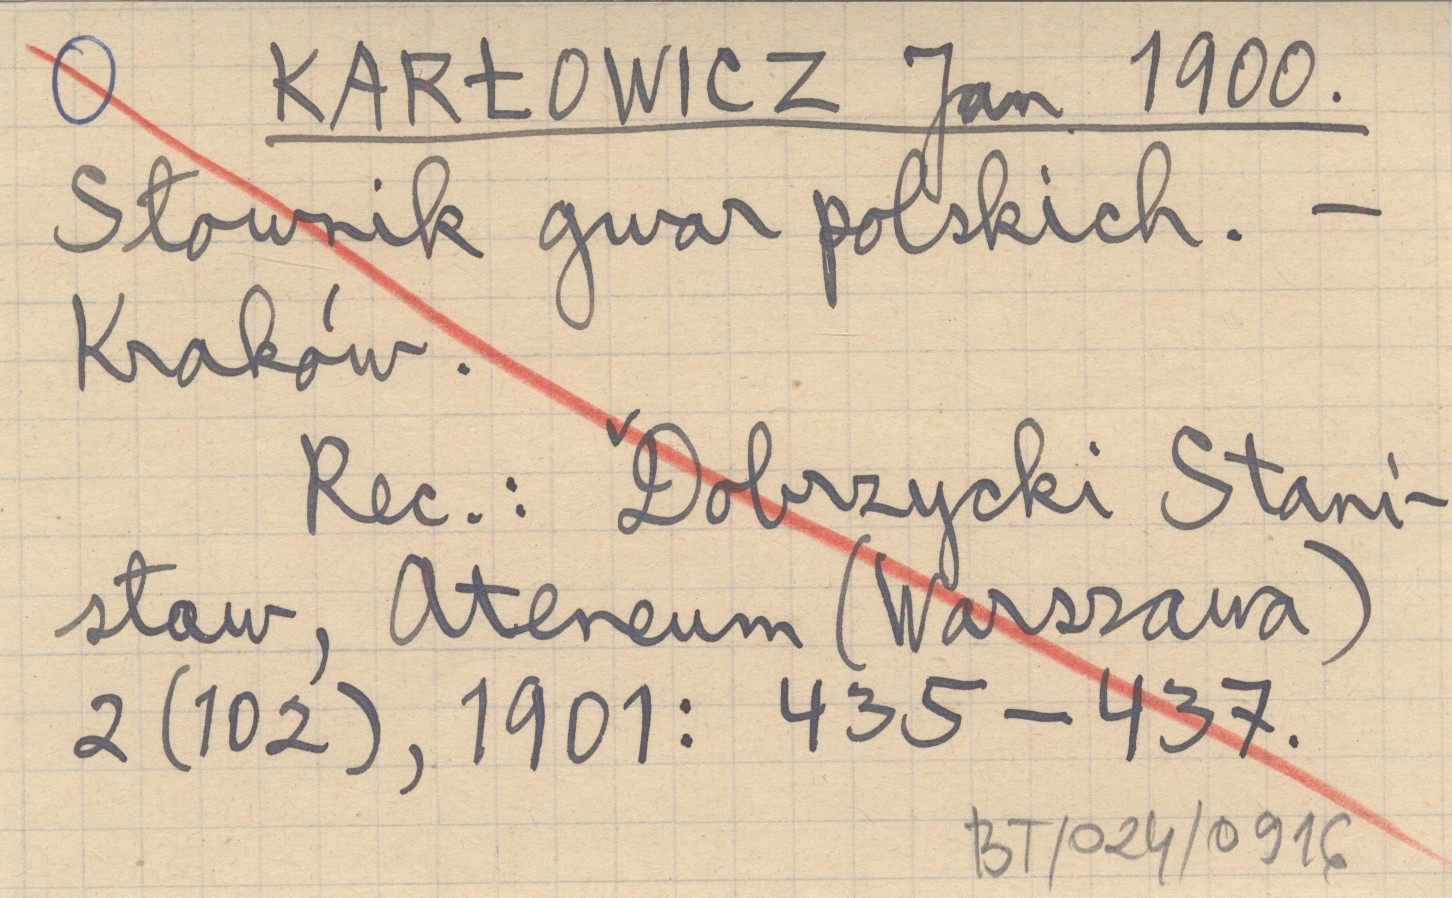 KARŁOWICZ Jan 1900.
Słownik gwar polskich. –
Kraków.
Rec.: Dobrzycki Stani-
sław, Ateneum (Warszawa)
2 (102), 1901: 435–437.
BT/024/0916